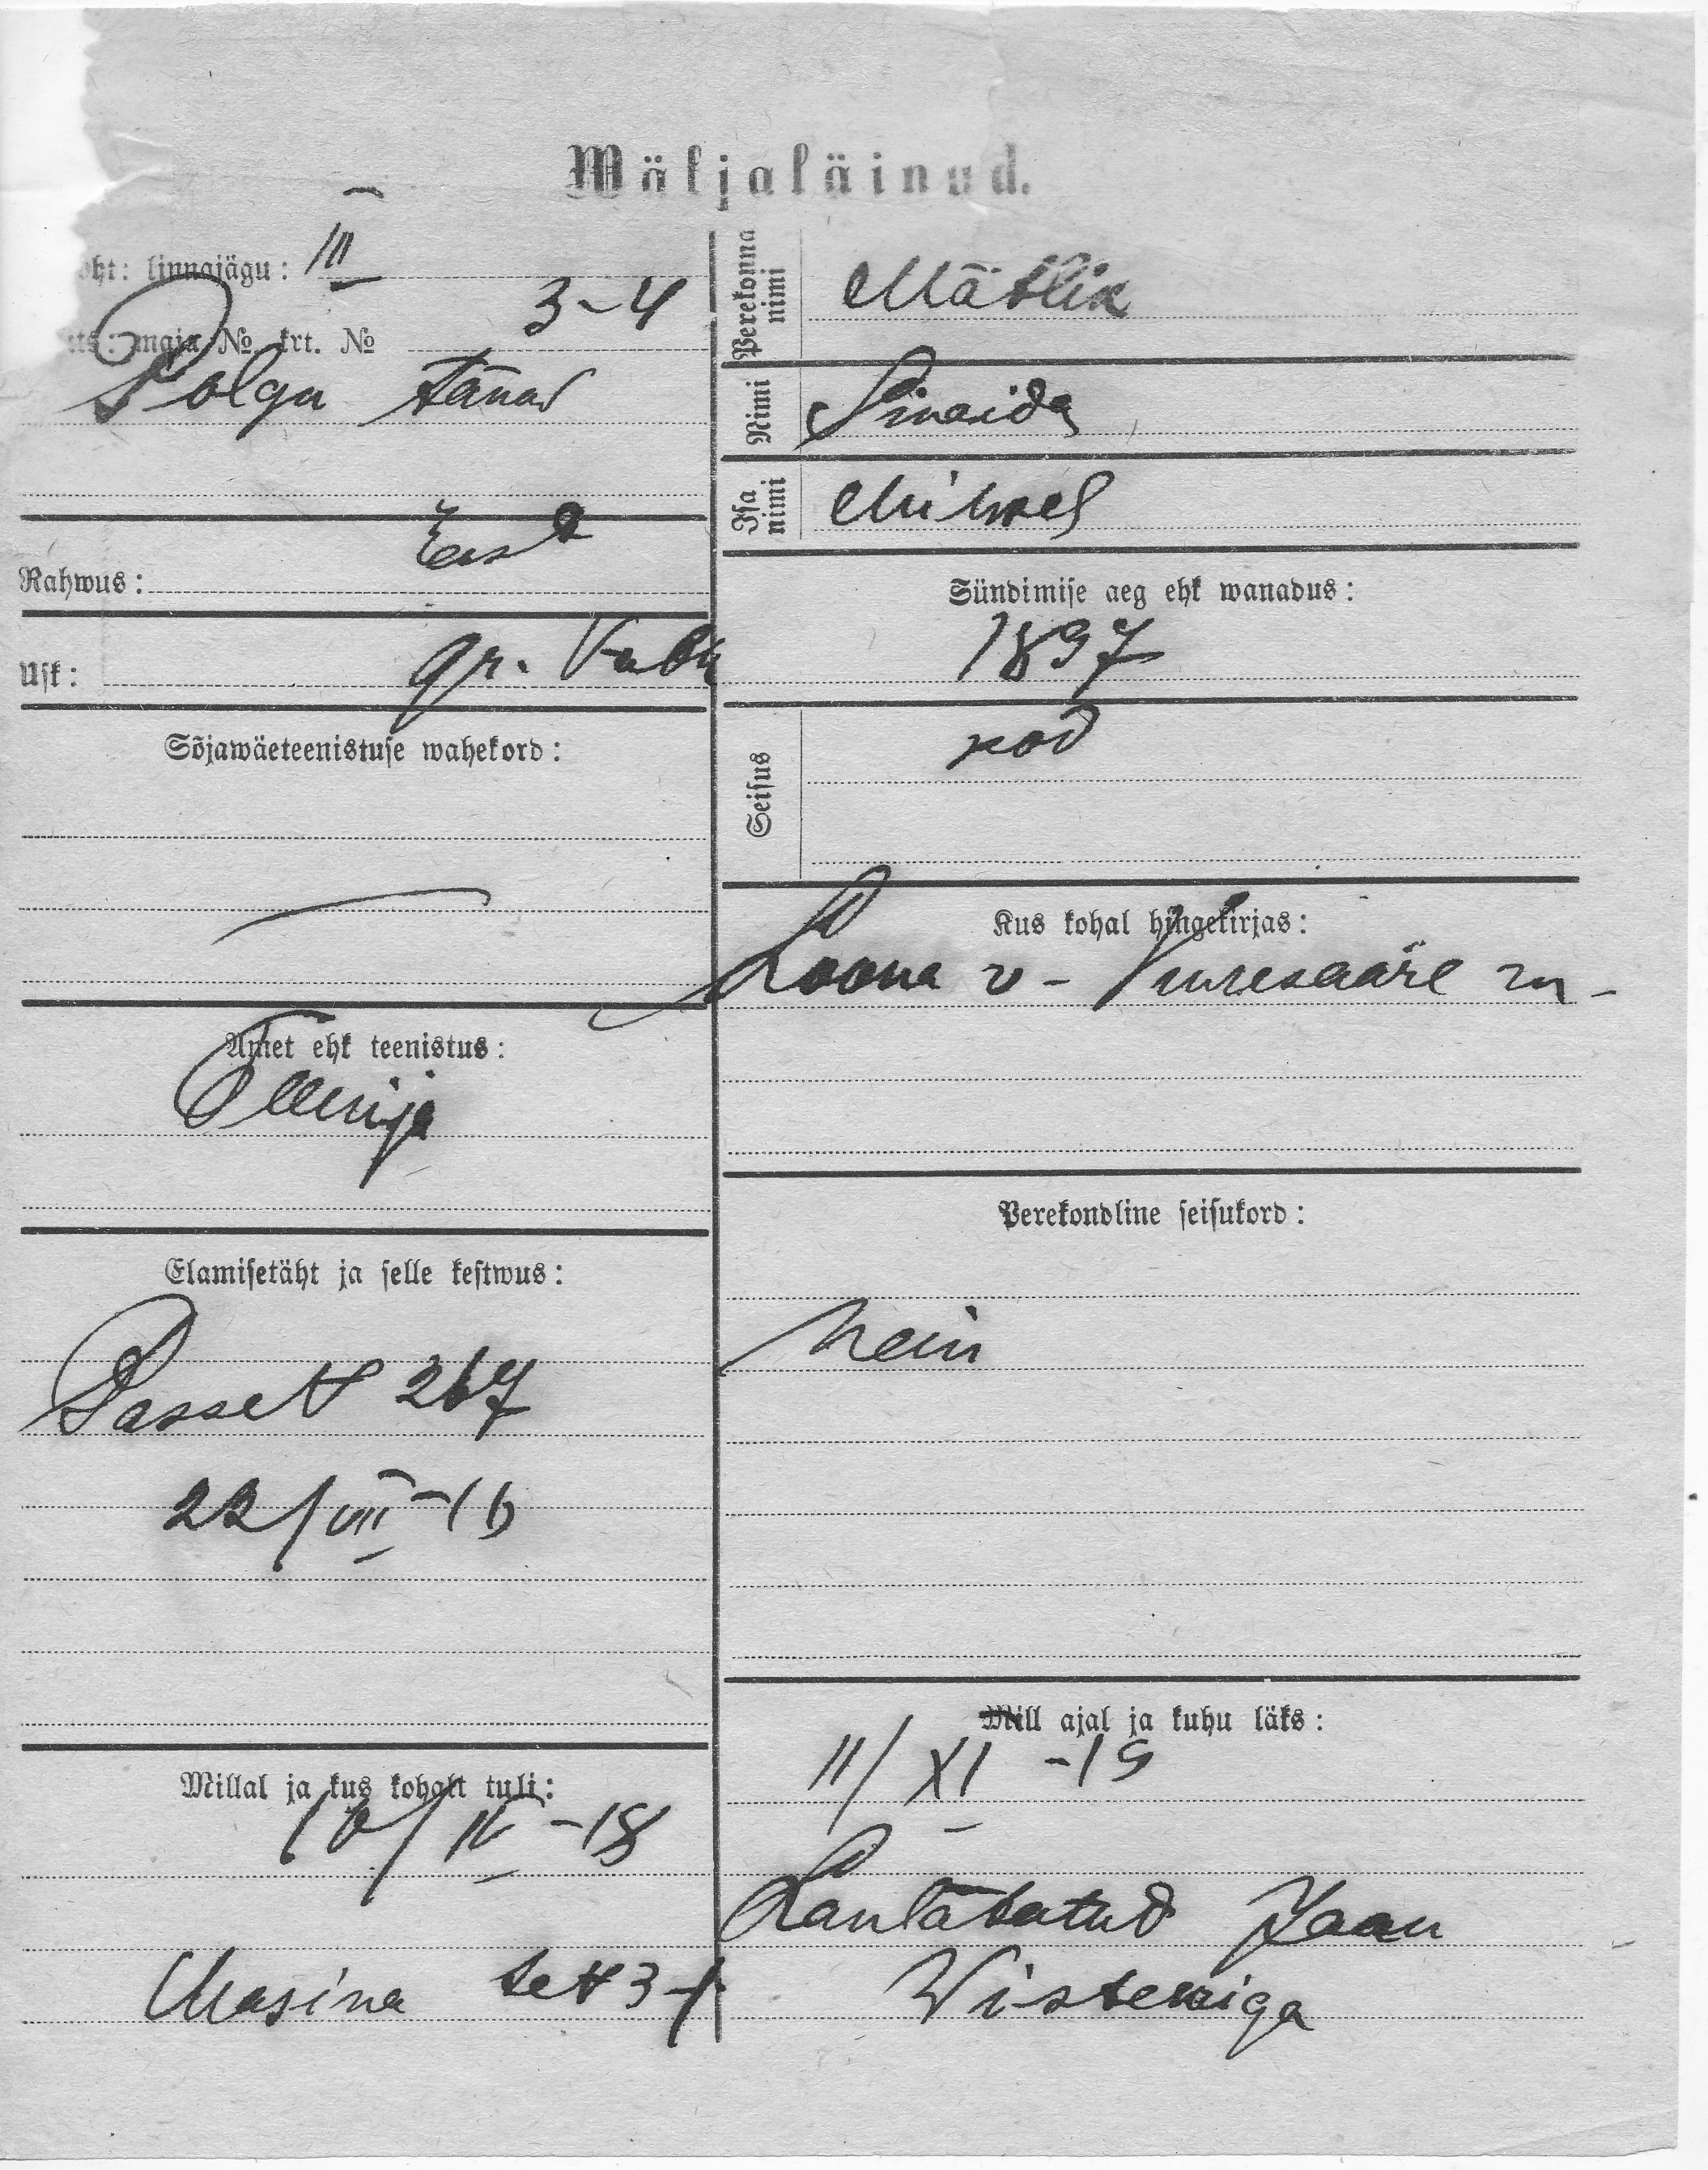 Wäljaläinud.
oht: linnajägu: III
maja № krt. № 3-4
Polgu tänav
Rahwus: Eest
Usk: gr.
Sõjawäeteenistuse wahekord:
Amet ehk teenistus:
Elamisetäht ja selle kestwus:
Passett 267
22/VII-16
Millal ja kus kohalt tuli:
16/IV-18
Masina
Perekonna nimi Mätlik
Nimi Sinaida
Isa nimi Mihkel
Sündimise aeg ehk wanadus:
1897
Seisus
Kus kohal hingekirjas:
Loona v- Kuresaare m-
Perekondline seisukord:
Mill ajal ja kuhu läks:
11/XI-19
Laulatatud Jaan